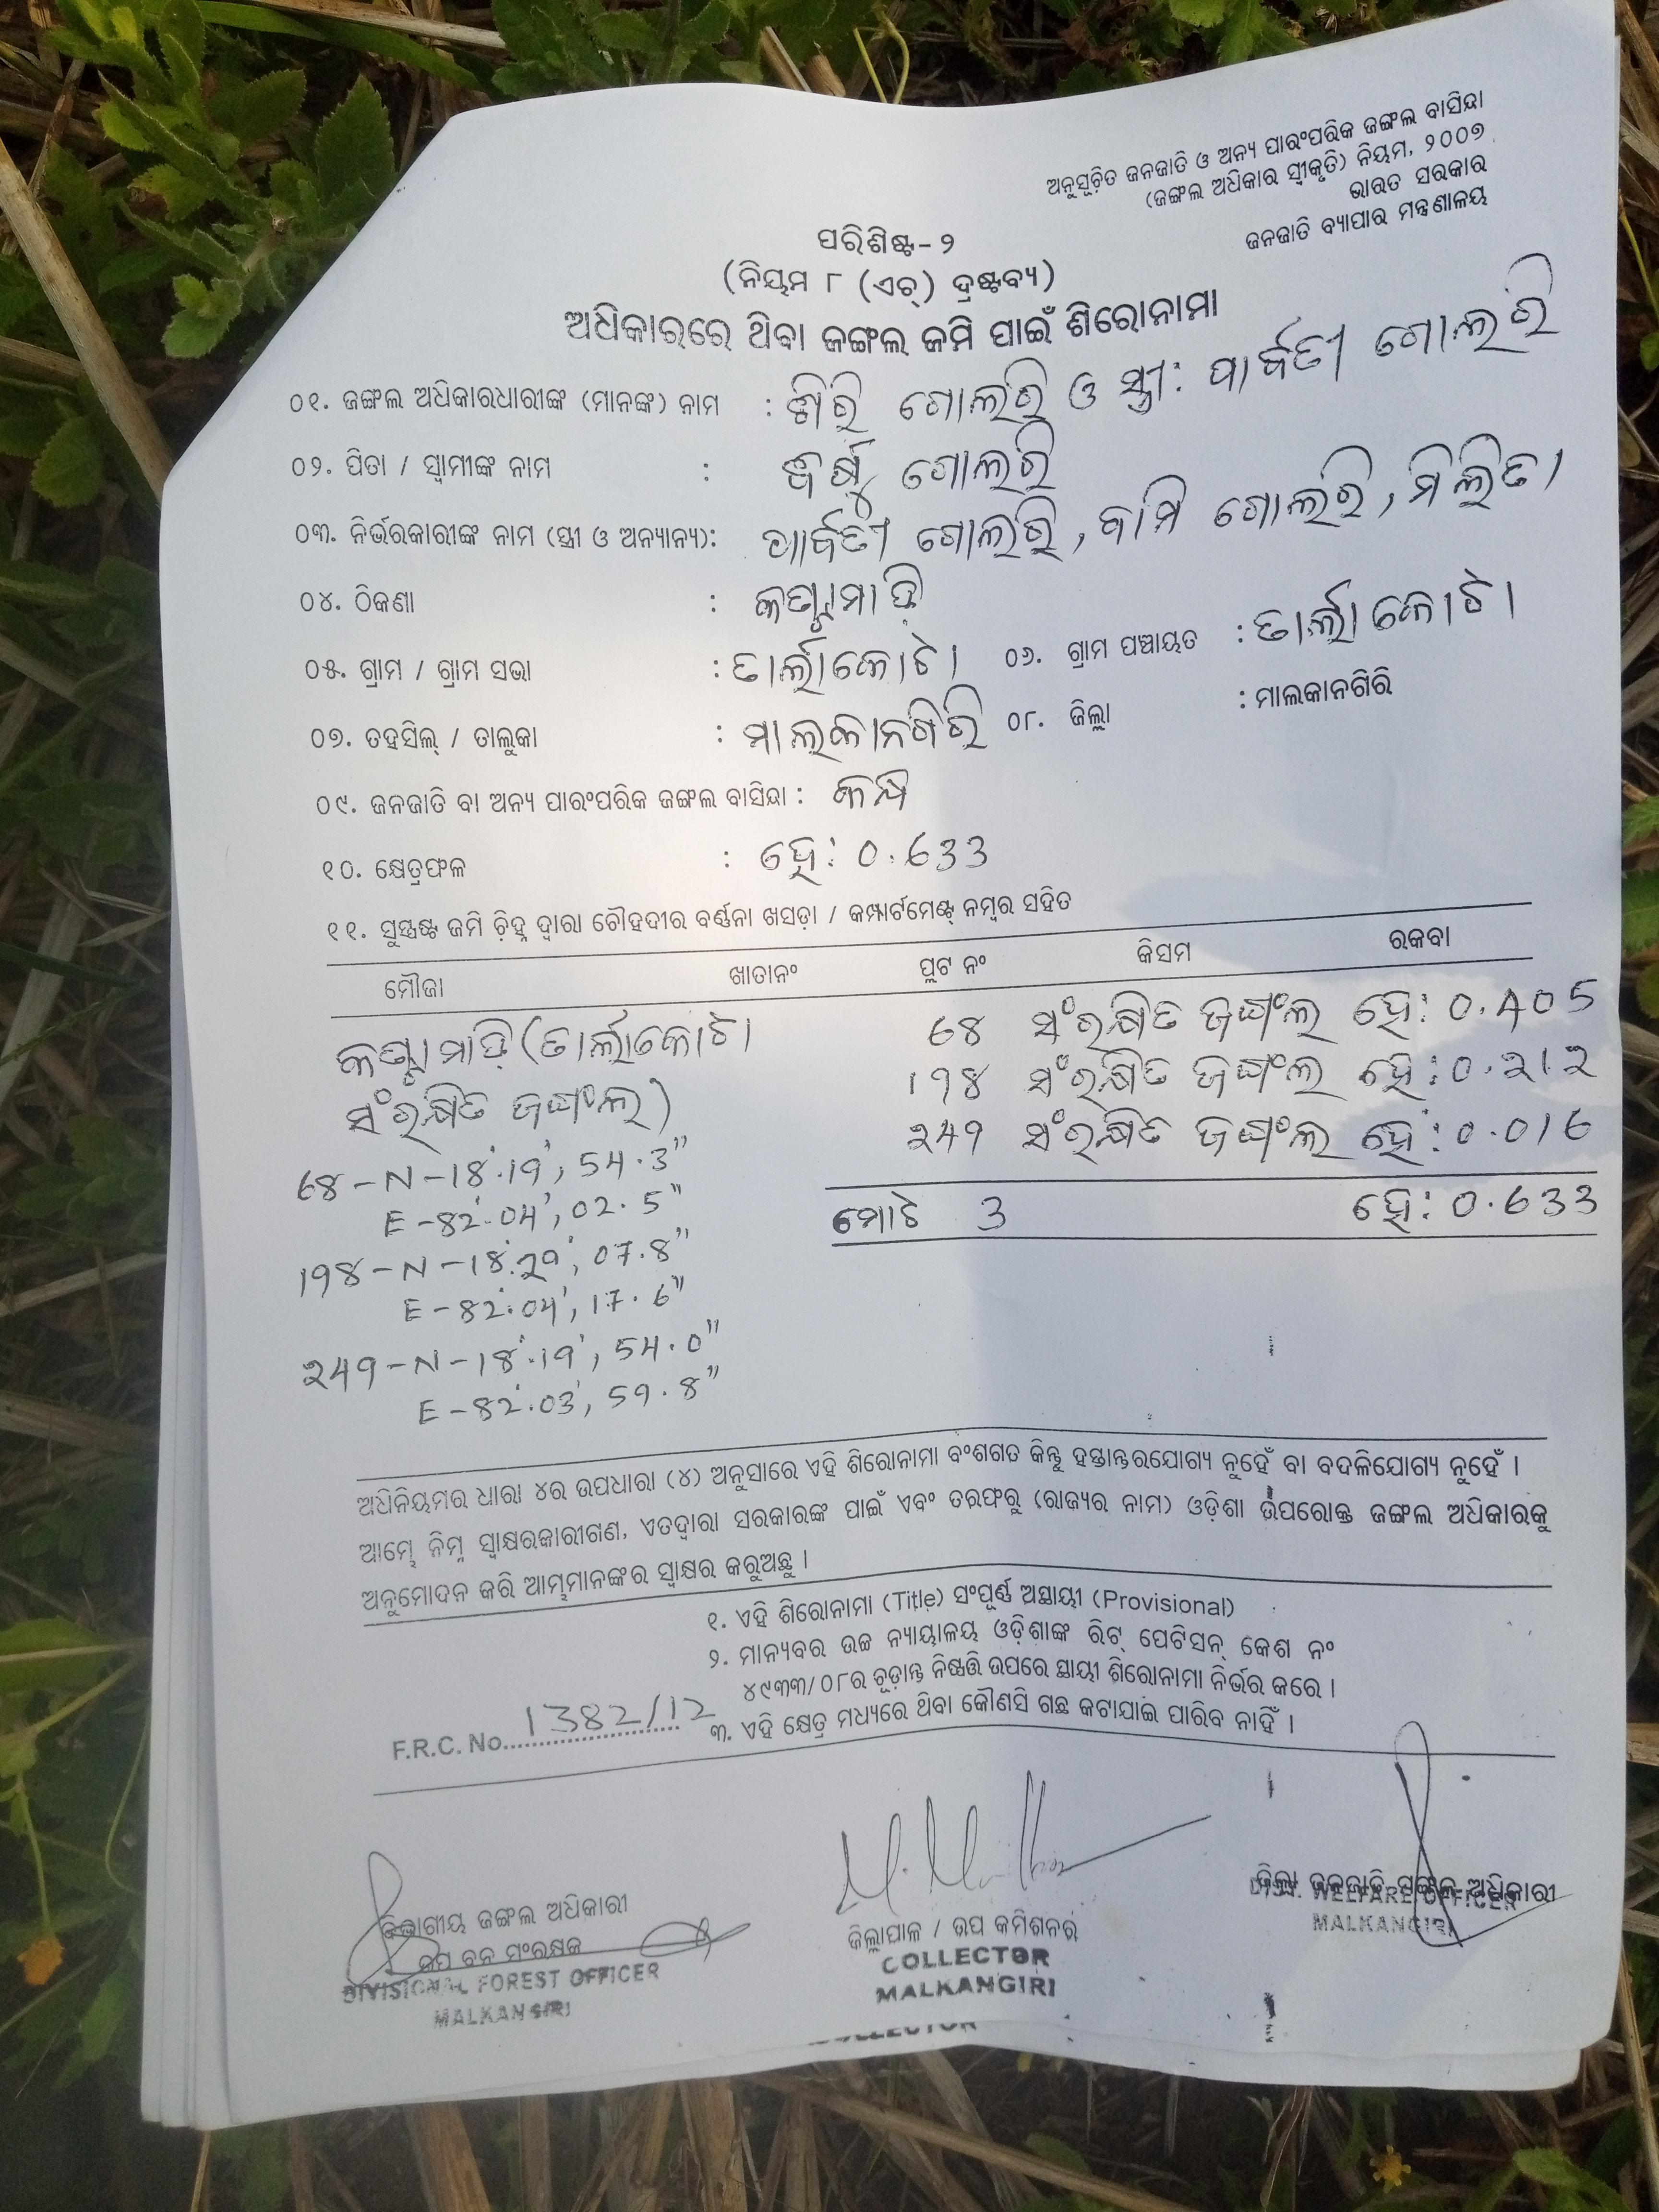 ଅନୁସୂଚିତ ଜନଜାତି ଓ ଅନ୍ୟ ପାରଂପରିକ ଜଙ୍ଗଲ ବାସିନ୍ଦା
(ଜଙ୍ଗଲ ଅଧିକାର ସ୍ୱୀକୃତି) ନିୟମ, ୨୦୦୭
ଭାରତ ସରକାର
ଜନଜାତି ବ୍ୟାପାର ମନ୍ତ୍ରଣାଳୟ
ପରିଶିଷ୍ଟ-୨
(ନିୟମ ୮ (ଏଚ୍) ଦ୍ରଷ୍ଟବ୍ୟ)
ଅଧିକାରରେ ଥିବା ଜଙ୍ଗଲ ଜମି ପାଇଁ ଶିରୋନାମା
୦୧. ଜଙ୍ଗଲ ଅଧିକାରଧାରୀଙ୍କ (ମାନଙ୍କ) ନାମ : ଶିରି ଗୋଲରି ଓ ସ୍ତ୍ରୀ: ପାର୍ବତୀ ଗୋଲରି
୦୨. ପିତା / ସ୍ୱାମୀଙ୍କ ନାମ : ଗୋଲରି
୦୩. ନିର୍ଭରକାରୀଙ୍କ ନାମ (ସ୍ତ୍ରୀ ଓ ଅନ୍ୟାନ୍ୟ): ପାର୍ବତୀ ଗୋଲରି, ବାମି ଗୋଲରି, ମିଲିତା
୦୪. ଠିକଣା :
୦୫. ଗ୍ରାମ / ଗ୍ରାମ ସଭା : ତାର୍ଲାକୋଟା ୦୬. ଗ୍ରାମ ପଞ୍ଚାୟତ : ତାର୍ଲାକୋଟା
୦୭. ତହସିଲ୍ / ତାଲୁକା : ମାଲକାନଗିରି ୦୮. ଜିଲ୍ଲା : ମାଲକାନଗିରି
୦୯. ଜନଜାତି ବା ଅନ୍ୟ ପାରଂପରିକ ଜଙ୍ଗଲ ବାସିନ୍ଦା : କନ୍ଧ
୧୦. କ୍ଷେତ୍ରଫଳ : ହେ: 0.633
୧୧. ସୁସ୍ପଷ୍ଟ ଜମି ଚିହ୍ନ ଦ୍ୱାରା ଚୌହଦୀର ବର୍ଣ୍ଣନା ଖସଡ଼ା / କମ୍ପାର୍ଟମେଣ୍ଟ୍ ନମ୍ବର ସହିତ
ମୌଜା ଖାତାନଂ ପ୍ଲଟ ନଂ କିସମ ରକବା
(ତାର୍ଲାକୋଟା 68 ସଂରକ୍ଷିତ ଜଙ୍ଗଲ ହେ: 0.405
ସଂରକ୍ଷିତ ଜଙ୍ଗଲ) 198 ସଂରକ୍ଷିତ ଜଙ୍ଗଲ ହେ: 0.212
249 ସଂରକ୍ଷିତ ଜଙ୍ଗଲ ହେ: 0.016
68-N-18°.19', 54.3"
E-82°.04', 02.5"
ମୋଟ 3 ହେ: 0.633
198-N-18°.20', 07.8"
E-82°.04', 17.6"
249-N-18°.19', 54.0"
E-82°.03', 59.8"
ଅଧିନିୟମର ଧାରା ୪ର ଉପଧାରା (୪) ଅନୁସାରେ ଏହି ଶିରୋନାମା ବଂଶଗତ କିନ୍ତୁ ହସ୍ତାନ୍ତରଯୋଗ୍ୟ ନୁହେଁ ବା ବଦଳିଯୋଗ୍ୟ ନୁହେଁ ।
ଆମ୍ଭେ ନିମ୍ନ ସ୍ୱାକ୍ଷରକାରୀଗଣ, ଏତଦ୍ୱାରା ସରକାରଙ୍କ ପାଇଁ ଏବଂ ତରଫରୁ (ରାଜ୍ୟର ନାମ) ଓଡ଼ିଶା ଉପରୋକ୍ତ ଜଙ୍ଗଲ ଅଧିକାରକୁ
ଅନୁମୋଦନ କରି ଆମ୍ଭମାନଙ୍କର ସ୍ୱାକ୍ଷର କରୁଅଛୁ ।
୧. ଏହି ଶିରୋନାମା (Title) ସଂପୂର୍ଣ୍ଣ ଅସ୍ଥାୟୀ (Provisional)
୨. ମାନ୍ୟବର ଉଚ୍ଚ ନ୍ୟାୟାଳୟ ଓଡ଼ିଶାଙ୍କ ରିଟ୍ ପେଟିସନ୍ କେଶ ନଂ
୪୯୩୩/୦୮ର ଚୂଡ଼ାନ୍ତ ନିଷ୍ପତ୍ତି ଉପରେ ସ୍ଥାୟୀ ଶିରୋନାମା ନିର୍ଭର କରେ ।
୩. ଏହି କ୍ଷେତ୍ର ମଧ୍ୟରେ ଥିବା କୌଣସି ଗଛ କଟାଯାଇ ପାରିବ ନାହିଁ ।
F.R.C. No. 1382/12
ବିଭାଗୀୟ ଜଙ୍ଗଲ ଅଧିକାରୀ
ଉପ ବନ ସଂରକ୍ଷକ
DIVISIONAL FOREST OFFICER
MALKANGIRI
ଜିଲ୍ଲାପାଳ / ଉପ କମିଶନର
COLLECTOR
MALKANGIRI
ଜିଲ୍ଲା ଜନଜାତି ମଙ୍ଗଳ ଅଧିକାରୀ
DIST. WELFARE OFFICER
MALKANGIRI
COLLECTOR